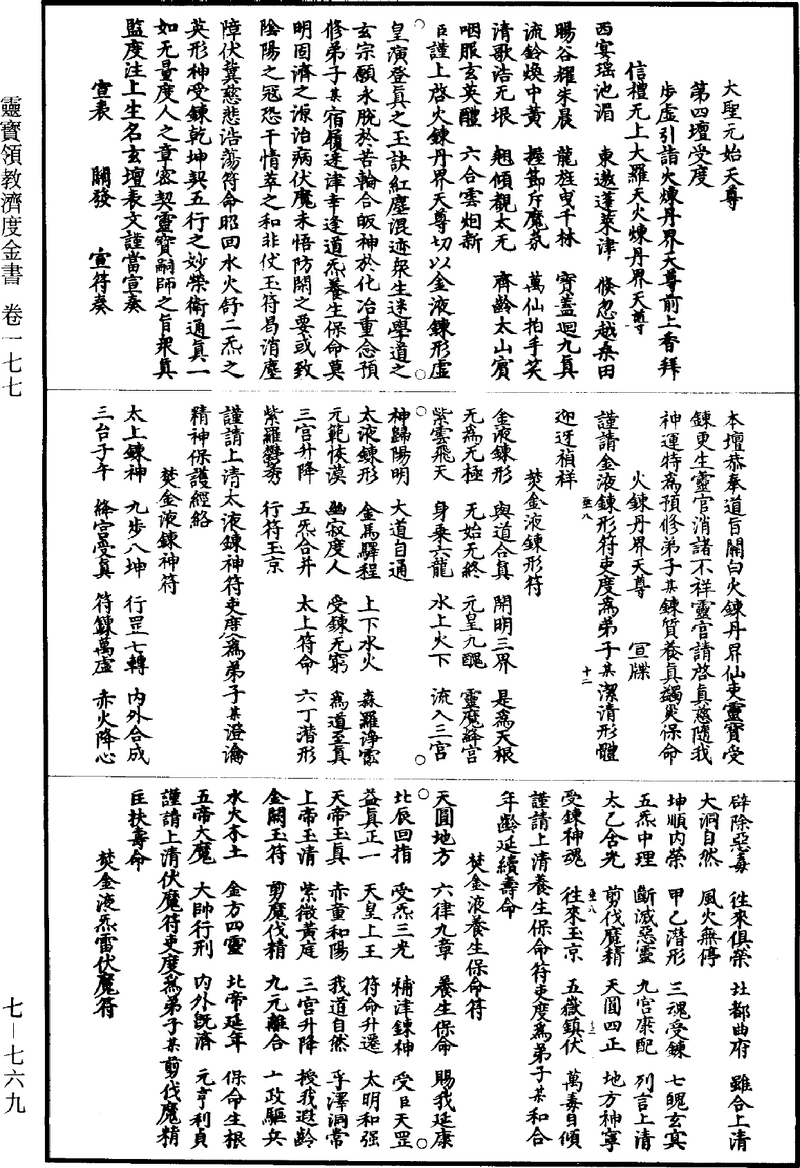 大聖元始天尊
第四壇受度
步虛引詣火煉丹界天尊前上香拜
信禮无上大羅天火煉丹界天尊
西宴瑤池湄　東遨蓬萊津　倏忽越桑田
暘谷耀朱晨　龍旌曳千林　寶蓋迴九真
流鈴煥中黃　握節斥魔氛　萬仙拍手笑
清歌浩无垠　翹傾觀太无　齊齡太山賓
咽服玄英醴　六合雲炯新
臣謹上啓火鍊丹界天尊切以金液鍊形虛
皇演登真之玉訣紅塵混迹衆生迷學道之
玄宗願永脫於苦輪合皈神於化冶重念預
修弟子某宿履迷津幸逢道炁養生保命莫
明固濟之源治病伏魔未悟防閑之要或致
陰陽之寇恐干情萃之和非仗玉符曷消塵
障伏冀慈悲浩蕩符命昭回水火舒二炁之
英形神受鍊乾坤契五行之妙榮衛通真一
如无量度人之章密契靈寶嗣師之旨衆真
監度注上生名玄壇表文謹當宣奏
宣表　關發　宣符奏
本壇恭奉道旨關白火鍊丹界仙吏靈寶受
鍊更生靈官消諸不祥靈官請啓真慈隨我
神運特爲預修弟子某鍊質養真蠲災保命
火鍊丹界天尊　宣牒
謹請金液鍊形符吏度爲弟子某潔清形體
迎迓禎祥
焚金液鍊形符
金液鍊形　與道合真　開明三界　是爲天根
无爲无極　无始无終　元皇九醜　靈魔絳宮
紫雲飛天　身乘六龍　水上火下　流入三宮
神歸陽明　大道自通
太液鍊形　金馬驛程　上下水火　森羅淨雲
元範恢漠　幽寂度人　受鍊无窮　爲道至真
三宮升降　五炁合并　太上符命　六丁潛形
紫羅鬱秀　行符玉京
謹請上清太液鍊神符吏度爲弟子某澄瀹
精神保護經絡
焚金液鍊神符
太上鍊神　九步八坤　行罡七轉　內外合成
三台子午　絳宮受真　符鍊萬虛　赤火降心
辟除惡毒　往來俱榮　社都曲府　雖合上清
大洞自然　風火無停
坤順內榮　甲乙潛形　三魂受鍊　七魄玄冥
五炁中理　斷滅惡靈　九宮康配　列言上清
太乙含光　剪伐魔精　天圓四正　地方神寧
受鍊神魂　往來玉京　五嶽鎮伏　萬毒自傾
謹請上清養生保命符吏度爲弟子某和合
年齡延續壽命
焚金液養生保命符
天圓地方　六律九章　養生保命　賜我延康
北辰回指　受炁三光　補津鍊神　受臣天罡
益真正一　天皇上王　符命升遷　太明和强
天帝玉真　赤童和陽　我道自然　乎澤洞常
上帝玉清　紫微黃庭　三宮升降　授我遐齡
金闕玉符　剪魔伐精　九元離合　一政驅兵
水火木土　金方四靈　北帝延年　保命生根
五帝大魔　大帥行刑　內外既濟　元亨利貞
謹請上清伏魔符吏度爲弟子某剪伐魔精
臣扶壽命
焚金液炁雷伏魔符
靈寶領教濟度金書　卷一七七
七—七六九